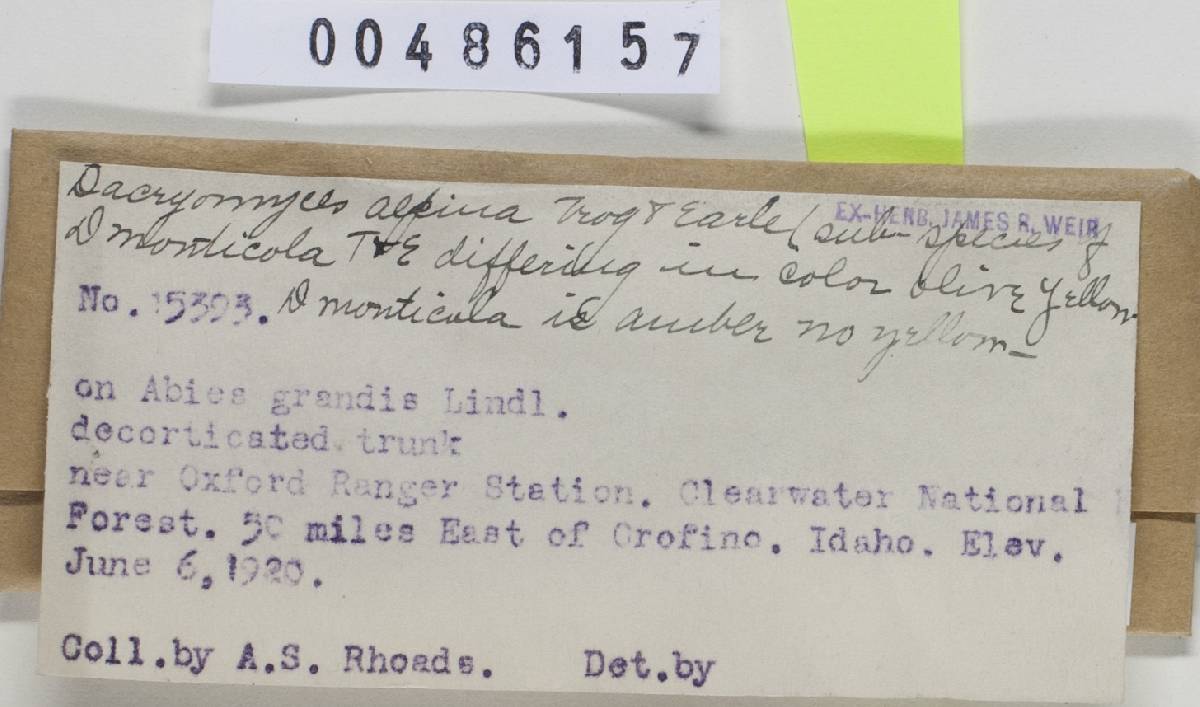 00486157
EX-HERB. JAMES R. WEIR
Dacryomyces alpina Trog & Earle (sub-species of
D monticola T & E differing in color olive yellow.
No. 15393. D monticola is amber no yellow—
on Abies grandis Lindl.
decorticated trunk
near Oxford Ranger Station. Clearwater National
Forest. 50 miles East of Orofino. Idaho. Elev.
June 6, 1920.
Coll.by A.S. Rhoads. Det.by